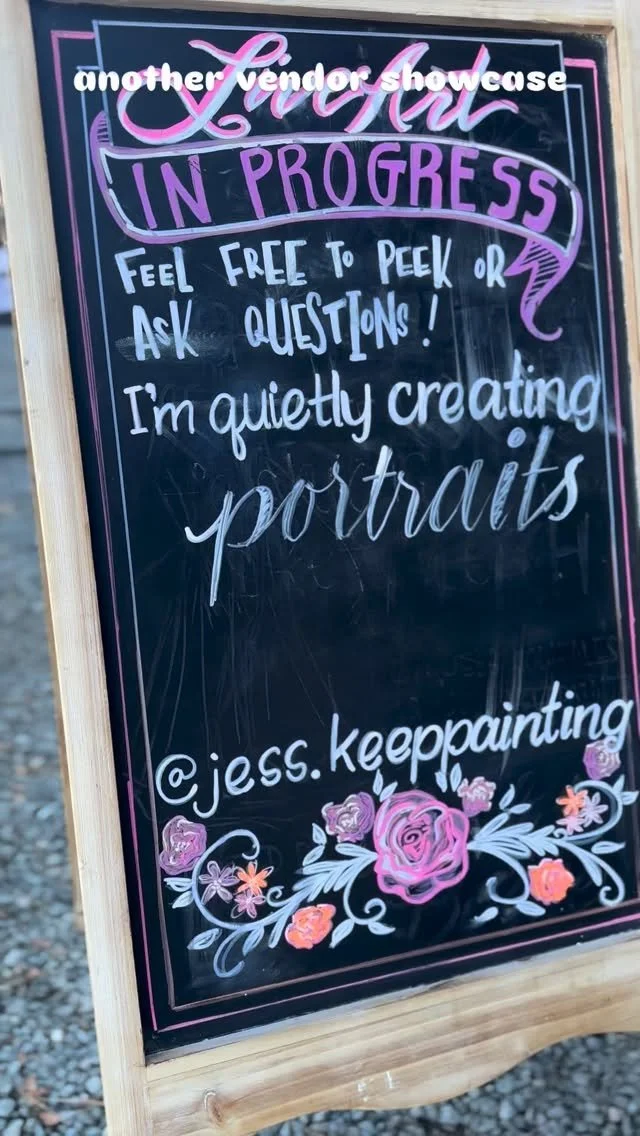 another vendor showcase
Live Art
IN PROGRESS
FEEL FREE TO PEEK OR
ASK QUESTIONS!
I'm quietly creating
portraits
@jess.keeppainting